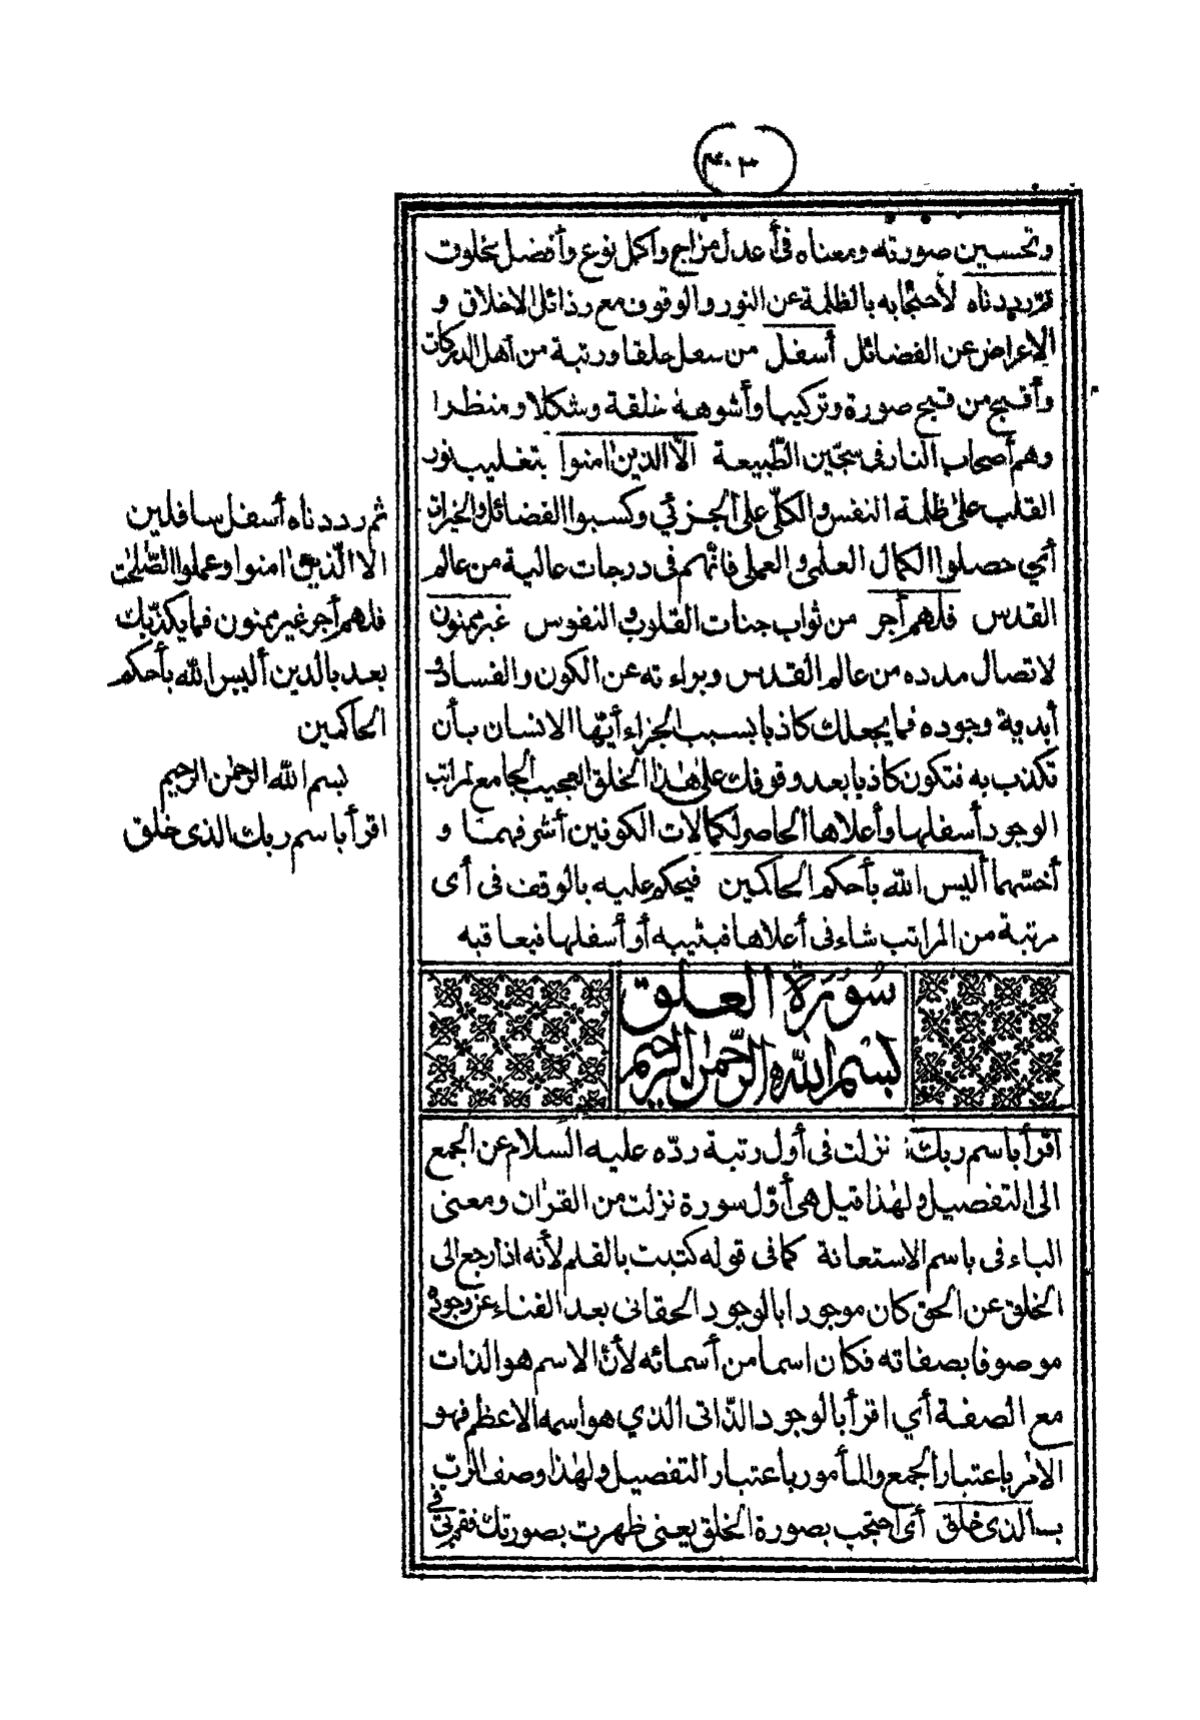 ٤٠٣
وتحسين صورته ومعناه في أعدل مزاج وأكمل نوع وأفضل مخلوق
ثم رددناه لأحتجابه بالظلمة عن النور والوقوف مع رذائل الاخلاق و
الإعراض عن الفضائل أسفل من سفل خلقا ورتبة من أهل الدركات
وأقبح من قبح صورة وتركيبا وأشوهه خلقة وشكلا ومنظرا
وهم أصحاب النار في سجّين الطّبيعة الاّ الذين اٰمنوا بتغليب نور
القلب على ظلمة النفس والكلّي على الجزئي وكسبوا الفضائل والخيرات
أي حصلوا الكمال العلمي والعملي فانّهم في درجات عالية من عالم
القدس فلهم أجر من ثواب جنات القلوب والنفوس غير ممنون
لاتصال مدده من عالم القدس وبراءته عن الكون والفساد و
أبدية وجوده فما يجعلك كاذبا بسبب الجزاء أيّها الانسان بأن
تكذب به فتكون كاذبا بعد وقوفك على هٰذا الخلق العجيب الجامع لمراتب
الوجود أسفلها وأعلاها الحاصر لكمالات الكونين أشرفهما و
أخسّهما أليس الله بأحكم الحاكمين فيحكم عليه بالوقف في أى
مرتبة من المراتب شاء في أعلاها فيثيبه أو أسفلها فيعاقبه
ثم رددناه أسفل سافلين
الا الّذين اٰمنوا وعملوا الصّٰلحٰت
فلهم أجر غير ممنون فما يكذّبك
بعد بالدين أليس الله بأحكم
الحاكمين
بسم الله الرحمٰن الرحيم
اقرأ باسم ربك الذى خلق
سُورَة العلق
بسْم الله الرّحمٰن الرحيم
اقرأ باسم ربك نزلت في أول رتبة ردّه عليه السلام عن الجمع
الى التفصيل ولهٰذا قيل هي أوّل سورة نزلت من القرآن ومعنى
الباء في باسم الاستعانة كما في قوله كتبت بالقلم لأنه اذا رجع الى
الخلق عن الحق كان موجودا بالوجود الحقاني بعد الفناء عن وجوده
موصوفا بصفاته فكان اسما من أسمائه لأنّ الاسم هو الذات
مع الصفة أي اقرأ بالوجود الذّاتى الذي هو اسمه الاعظم فهو
الاٰمر باعتبار الجمع والمأمور باعتبار التفصيل ولهٰذا وصف الربّ
بـالذى خلق أى احتجب بصورة الخلق يعنى ظهرت بصورتك فقم بي في